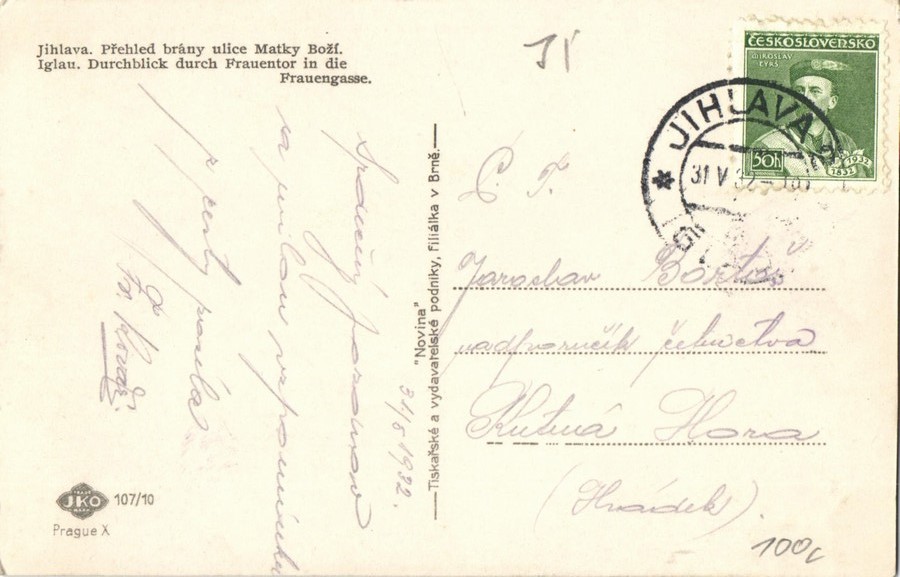 Jihlava. Přehled brány ulice Matky Boží.
Iglau. Durchblick durch Frauentor in die
Frauengasse.
ČESKOSLOVENSKO
MIROSLAV
TYRŠ
50h
1932
1832
JIHLAVA
31 V 32
Srdečný pozdrav
a milou vzpomínku
z cesty posílá
31/5 1932.
"Novina"
Tiskařské a vydavatelské podniky, filiálka v Brně.
P. T.
Jaroslav
nadporučík četnictva
Kutná Hora
(Hrádek)
JKO
107/10
Prague X
100